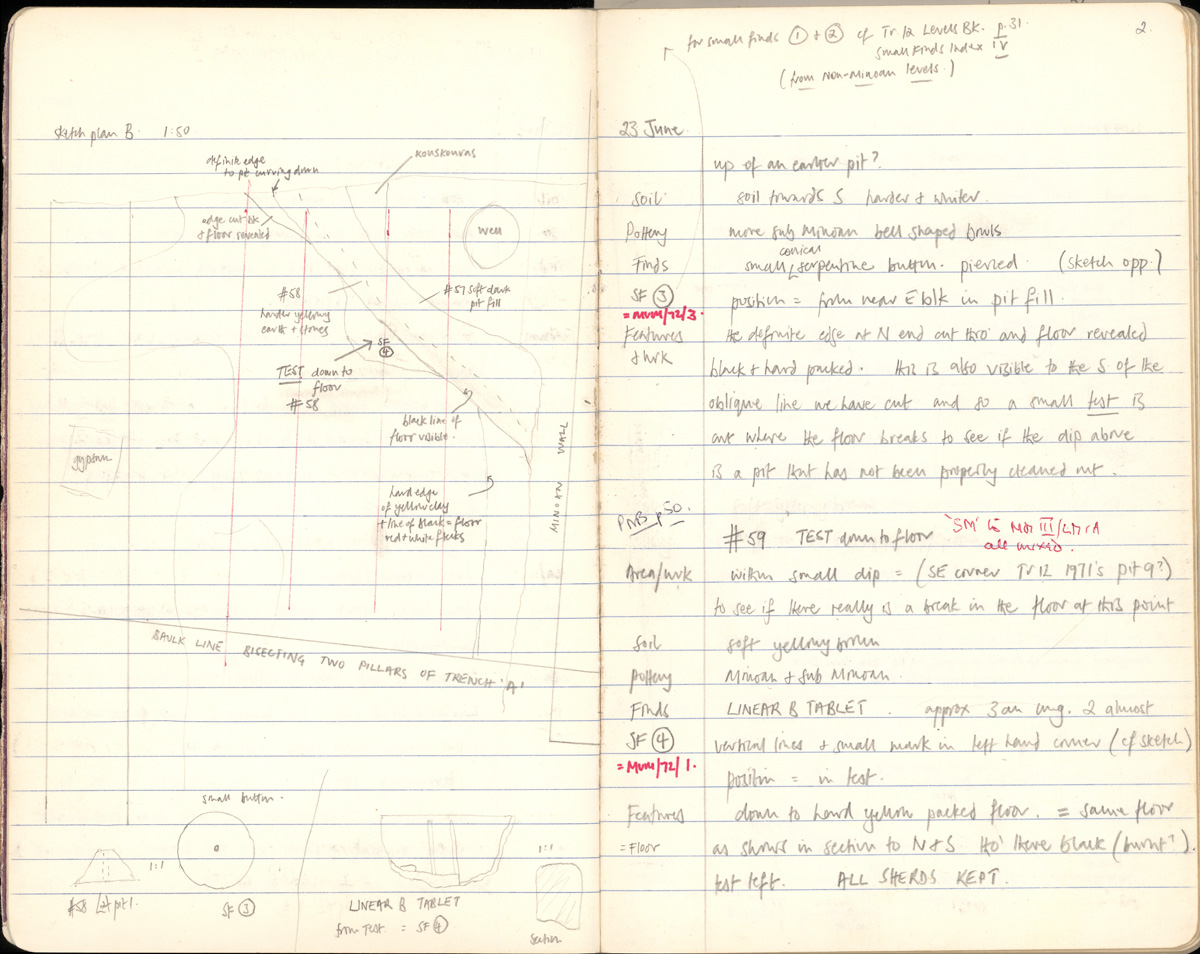 sketch plan B. 1:50
definite edge
to pit curving down
kouskouras
edge cut bk
+ floor revealed
well
#58
harder yellowy
earth + stones
#57 soft dark
pit fill
SF
④
TEST down to
floor
#58
black line of
floor visible.
gypsum
MINOAN WALL
hard edge
of yellow clay
+ line of black = floor
red + white flecks
BAULK LINE BISECTING TWO PILLARS OF TRENCH 'A'
small button.
1:1
1:1
#58 Lt pit 1.
SF ③
LINEAR B TABLET
from Test = SF ④
Section
for small finds ① + ② cf Tr 12 Levels Bk. p.31.
Small Finds Index IV
(from Non-Minoan levels.)
2.
23 June.
up of an earlier pit?
Soil soil towards S harder & whiter.
Pottery more sub Minoan bell shaped bowls
conical
Finds small serpentine button. pierced. (sketch opp.)
SF ③ position = from near E blk in pit fill.
= MUM/72/3.
Features the definite edge at N end cut thro' and floor revealed
+ wrk black + hard packed. this is also visible to the S of the
oblique line we have cut and so a small test is
cut where the floor breaks to see if the dip above
is a pit that has not been properly cleaned out.
PNB p50.
#59 TEST down to floor 'SM' to MM III/LM IA
all mixed.
Area/wrk within small dip = (SE corner Tr 12 1971's pit 9?)
to see if there really is a break in the floor at this point
Soil soft yellowy brown
Pottery Minoan + sub Minoan.
Finds LINEAR B TABLET. approx 3 cm lng. 2 almost
SF ④ vertical lines + small mark in left hand corner (cf sketch)
= MUM/72/1.
position = in test.
Features down to hard yellow packed floor. = same floor
= Floor as shows in section to N + S tho' there black (burnt?).
test left. ALL SHERDS KEPT.